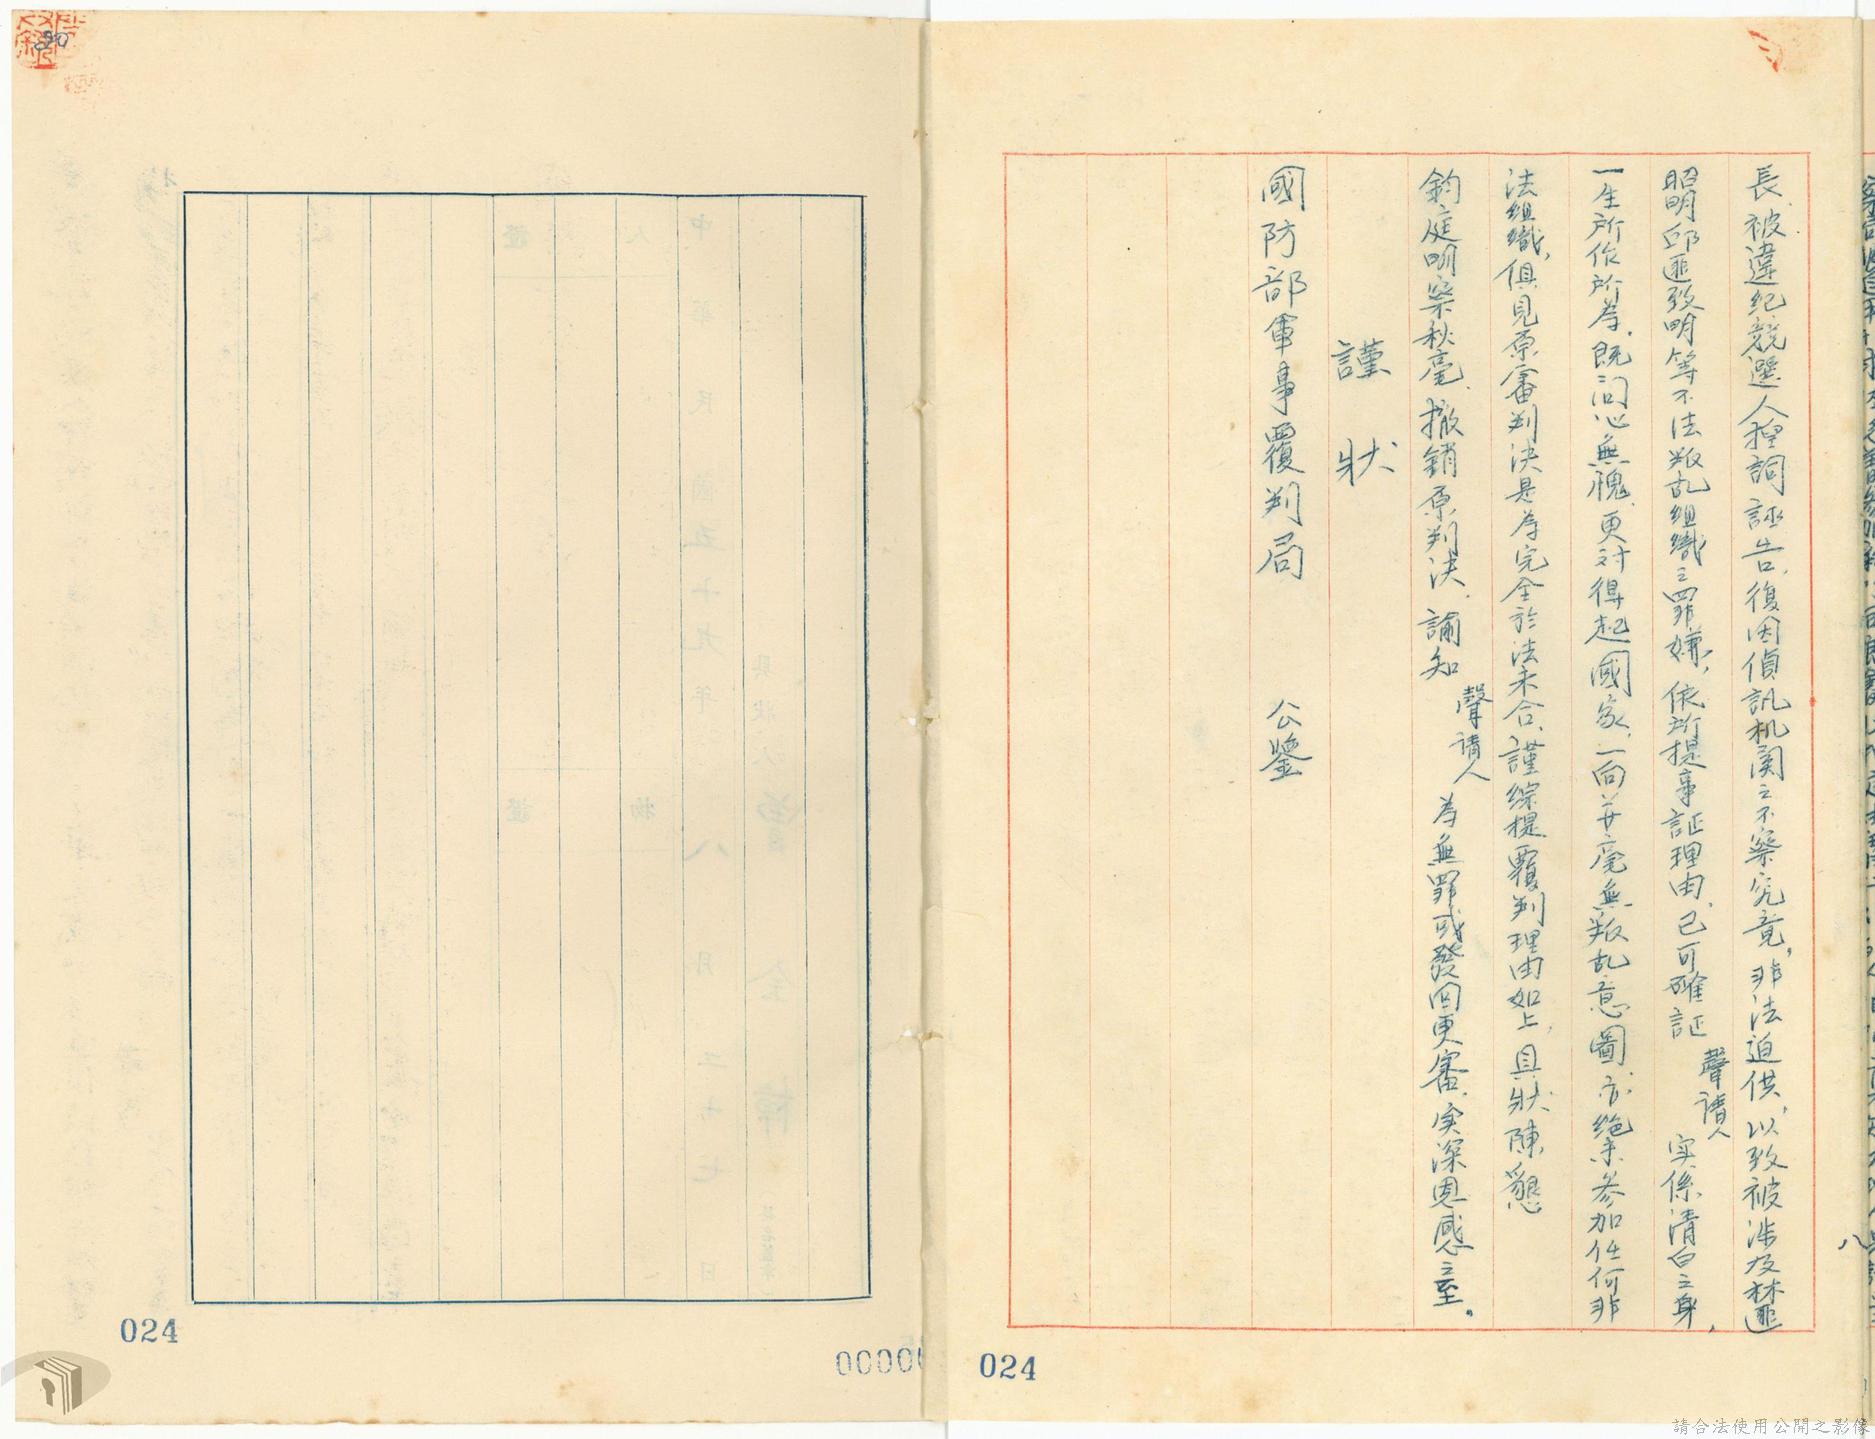 長、被違紀競選人捏詞誣告、復因偵訊机関之不察究竟,非法迫供,以致被涉及林匪
昭明邱匪致明等不法叛乱組織之罪嫌,依所提事証理由,已可確証聲請人实係清白之身,
一生所作所為,既问心無愧,更対得起國家,一向並毫無叛乱意圖,亦絶未參加任何非
法組織,俱見原審判決是為完全於法未合,謹綜提覆判理由如上,具狀陳懇
鈞庭明察秋毫,撤銷原判決,諭知聲請人為無罪或發回更審,实深恩感之至。
謹狀
國防部軍事覆判局 公鑒
八
024
中華民國五十九年八月二十七日
具狀人
人證
物證
024
00000
請合法使用公開之影像